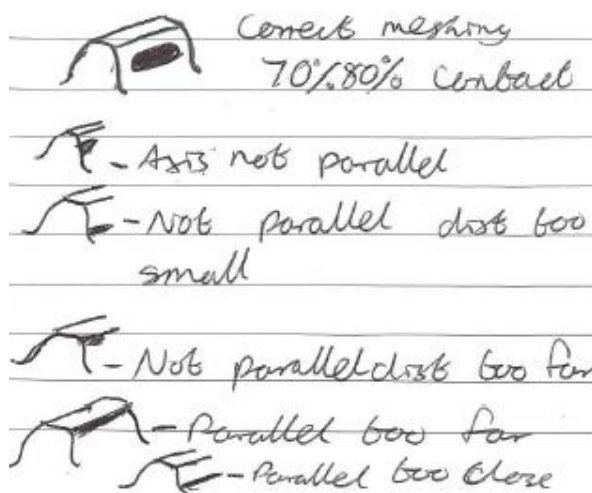 Correct meshing
70%.80% contact
- Axis not parallel
- Not parallel dist too
small
- Not parallel dist too far
- Parallel too far
- Parallel too close